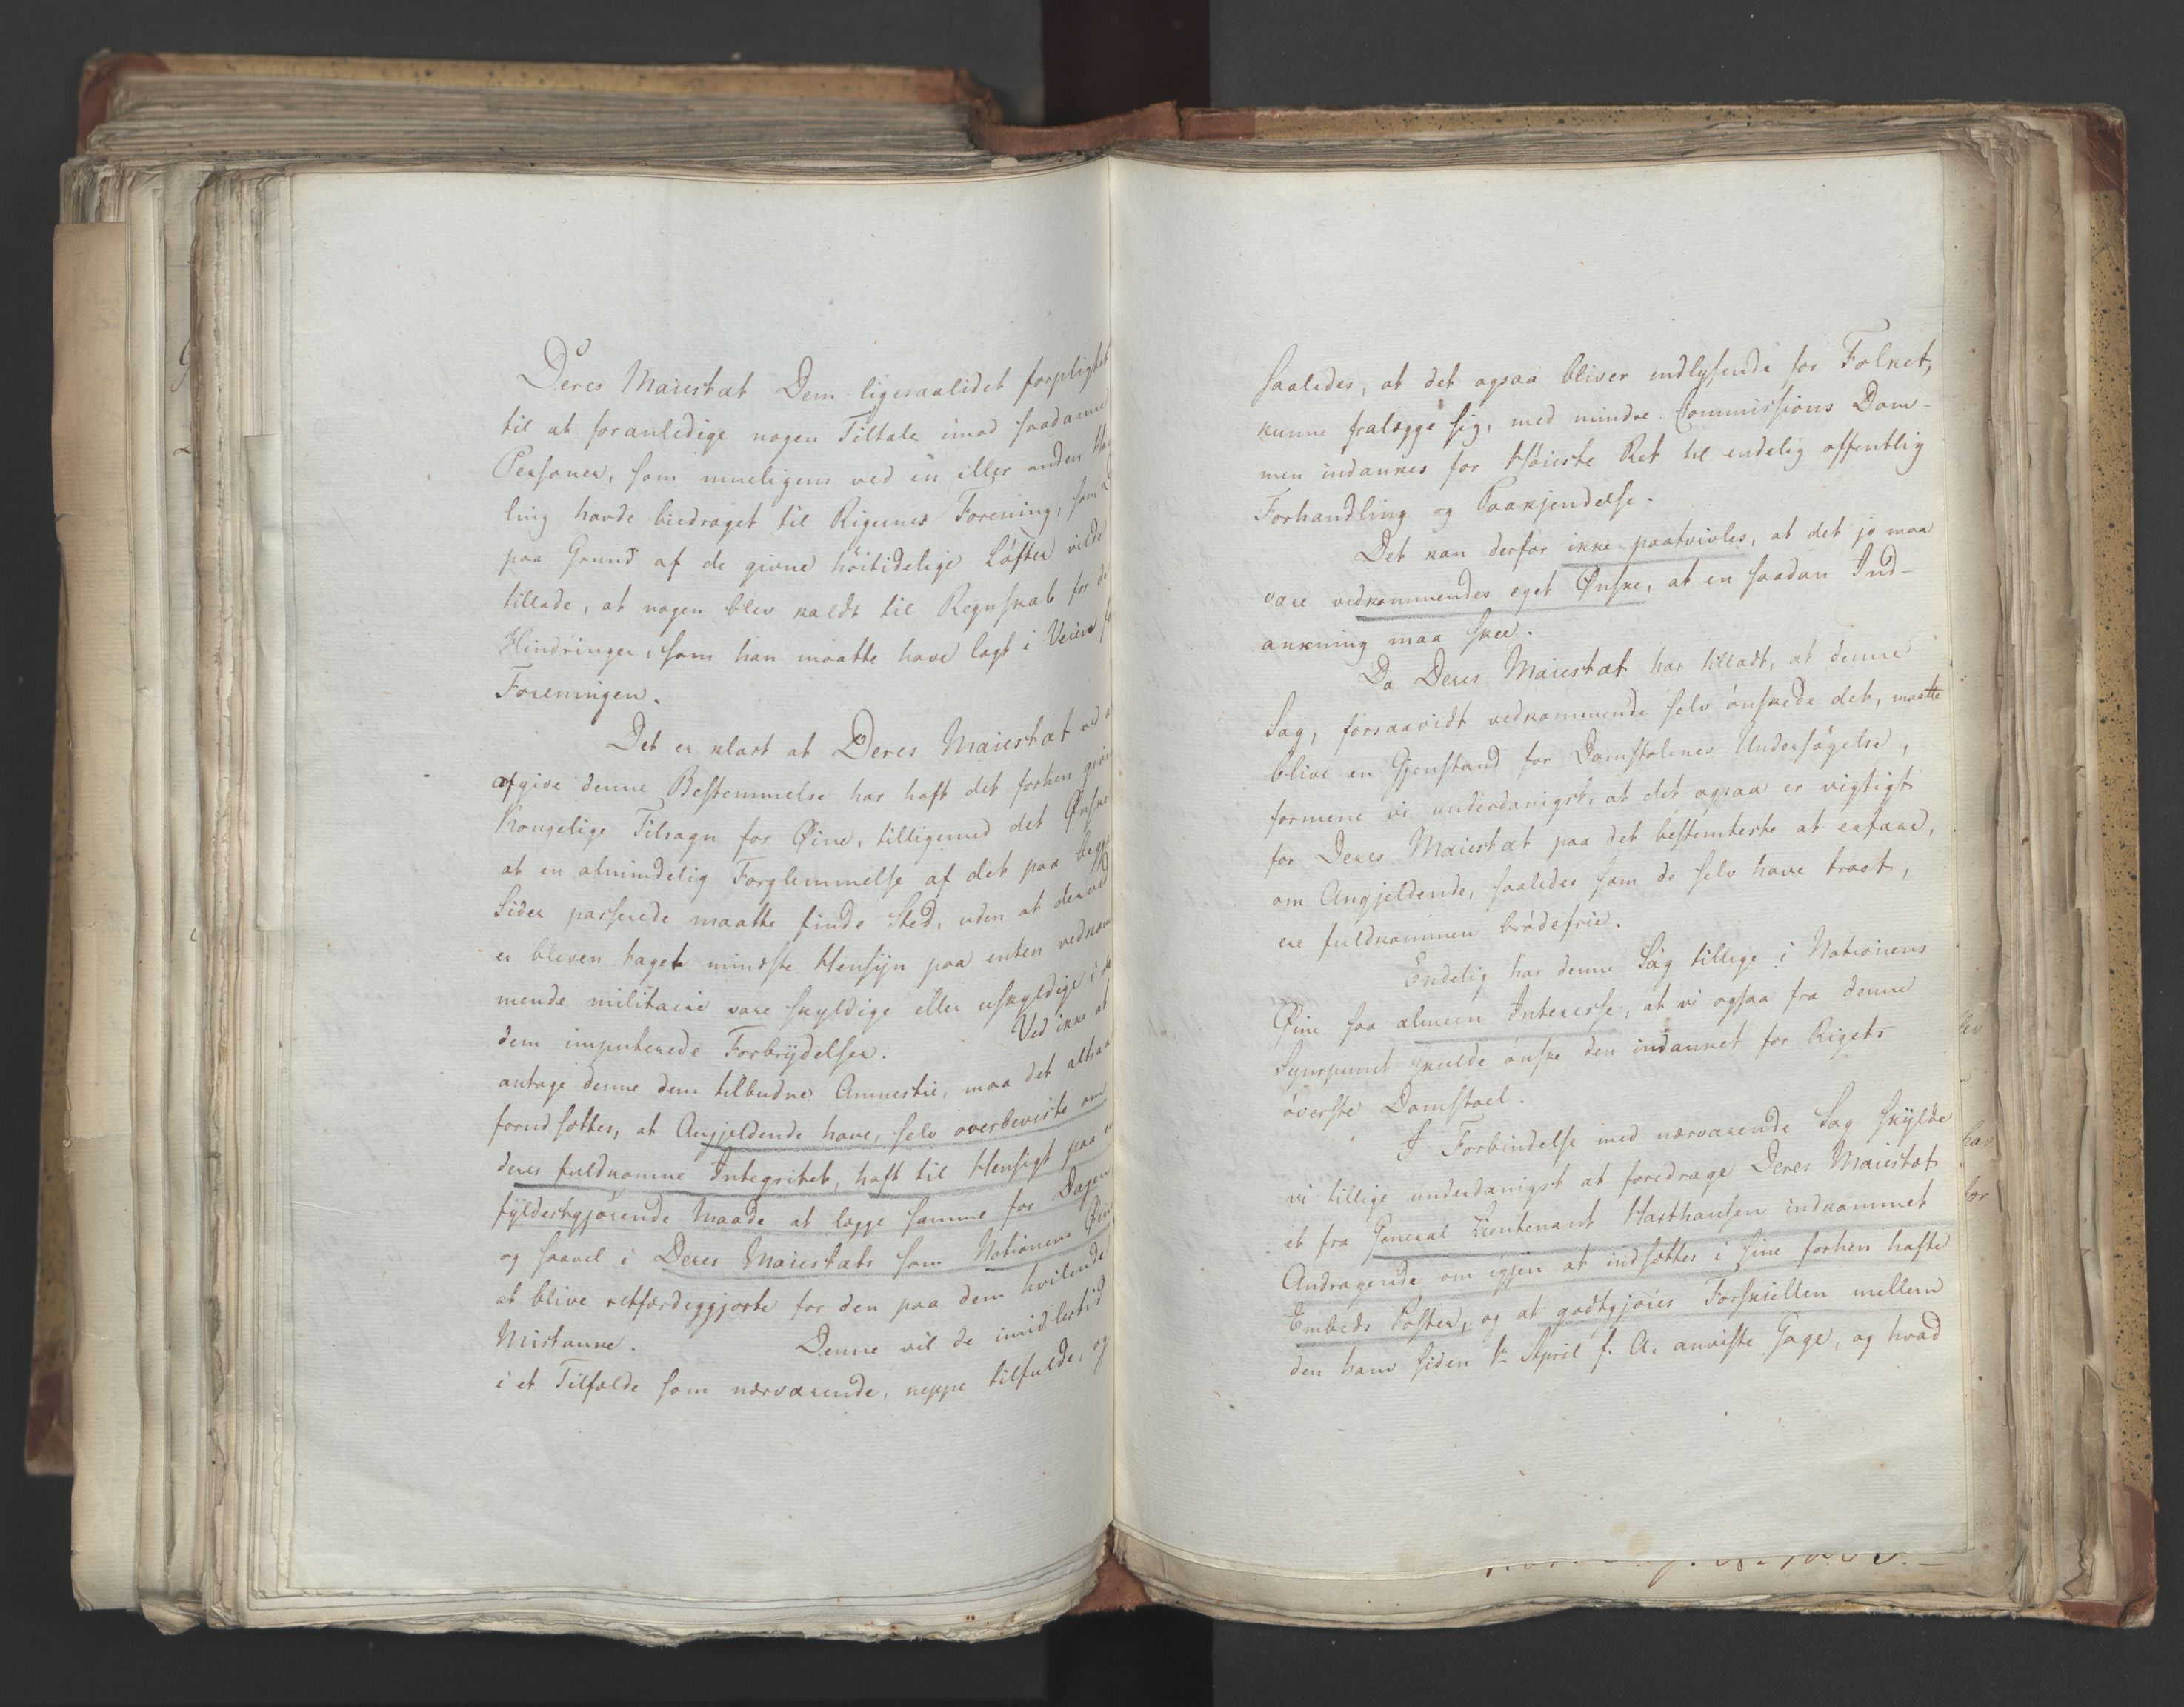 Deres Maiestæt Dem ligesaalidet forpligtet
til at foranledige nogen Tiltale imod saadanne
Personer, som mueligens ved en eller anden
ling havde biedraget til Rigernes Forening, som
paa Grund af de givne höitidelige Löfter vilde
tillade, at nogen blev kaldt til Regnskab for de
Hindringer, som han maatte have lagt i Veien
Foreningen.
Det er klart at Deres Maiestæt ved
afgive denne Bestemmelse har haft det forhen givne
Kongelige Tilsagn for Øine, tilligemed det Ønske
at en almindelig Forglemmelse af det paa begge
Sider passerede maatte finde Sted, uden at derved
er bleven taget mindste Hensyn paa enten vedkom
mende militaire vare skyldige eller uskyldige i de
dem imputerede Forbrydelser. Ved ikke at
antage denne dem tilbudne Amnestie, maa det altsaa
forudsættes, at Angjeldende have, selv overbeviste om
deres fuldkomne Integritet, haft til Hensigt paa en
fyldestgjörende Maade at lægge samme for Dagen
og saavel i Deres Maiestæts som Nationens Øine
at blive retfærdiggjorte for den paa dem hvilende
Mistanke. Denne vil de imidlertid
i et Tilfælde som nærværende, neppe tilfulde, og
saaledes, at det ogsaa bliver indlysende for Folket,
kunne fralægge sig, med mindre Commissions Dom-
men indankes for Höieste Ret til endelig offentlig
Forhandling og Paakjendelse.
Det kan derfor ikke paatvivles, at det jo maa
være vedkommendes eget Ønske, at en saadan Ind-
ankning maa skee.
Da Deres Maiestæt har tilladt, at denne
Sag, forsaavidt vedkommende selv önskede det, maatte
blive en Gjenstand for Domstolenes Undersögelse,
formene vi underdanigst, at det ogsaa er vigtigt
for Deres Maiestæt paa det bestemteste at erfare,
om Angjeldende, saaledes som de selv have troet,
ere fuldkommen brödefrie.
Endelig har denne Sag tillige i Nationens
Øine saa almeen Interesse, at vi ogsaa fra denne
Synspunct skulde önske den indanket for Rigets
överste Domstoel.
I Forbindelse med nærværende Sag skylde
vi tillige underdanigst at foredrage Deres Maiestæt
et fra General Lieutenant Haxthausen indkommet
Andragende om igjen at indsættes i sine forhen hafte
Embeds Poster, og at godtgjöres Forskiellen mellem
den ham siden 1te April f. A. anviste Gage, og hvad